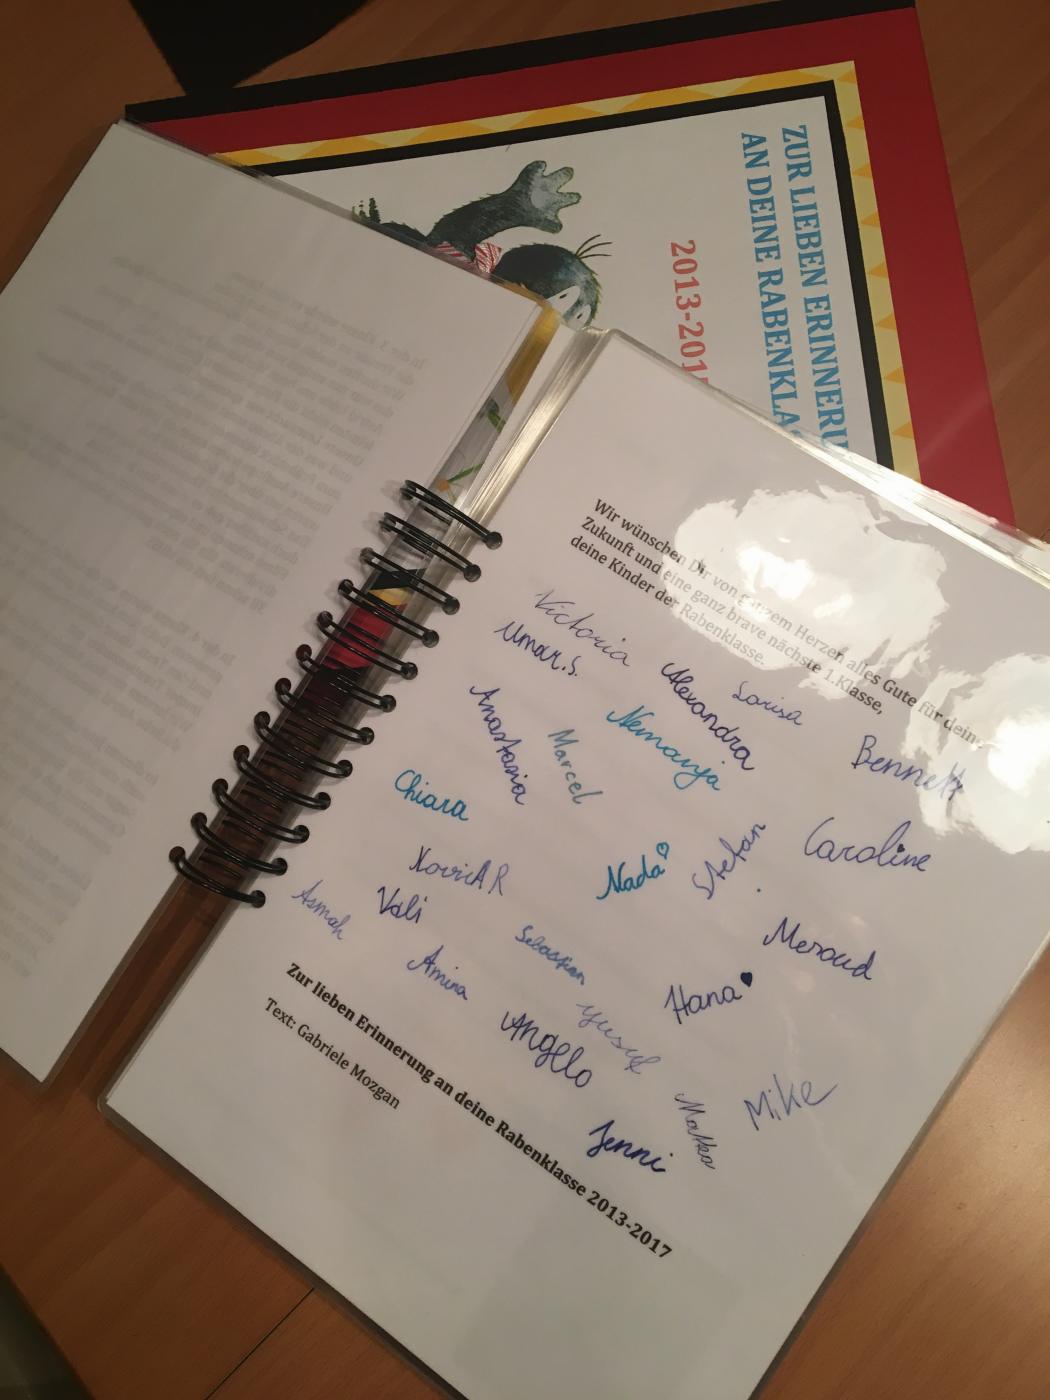 ZUR LIEBEN ERINNERU
AN DEINE RABENKLAS
2013-2017
Wir wünschen Dir von ganzem Herzen alles Gute für deine
Zukunft und eine ganz brave nächste 1.Klasse,
deine Kinder der Rabenklasse.
Victoria
Umar.S.
Alexandra
Larisa
Anastasia
Marcel
Nemanja
Bennett
Chiara
Nada
Stefan
Caroline
Vali
Asmah
Sebastian
Meroud
Amina
Hana
Angelo
Yusuf
Mike
Jenni
Zur lieben Erinnerung an deine Rabenklasse 2013-2017
Text: Gabriele Mozgan